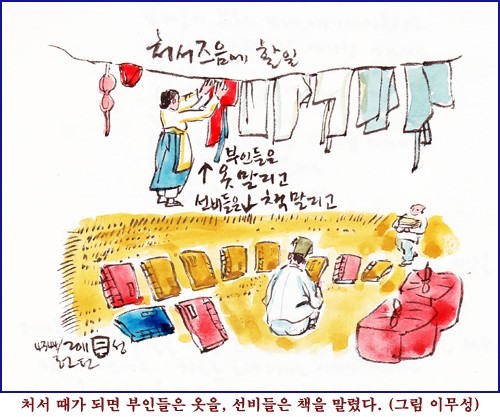 처서즈음에 할일
부인들은
↑ 옷 말리고
선비들은 책 말리고
처서 때가 되면 부인들은 옷을, 선비들은 책을 말렸다. (그림 이무성)